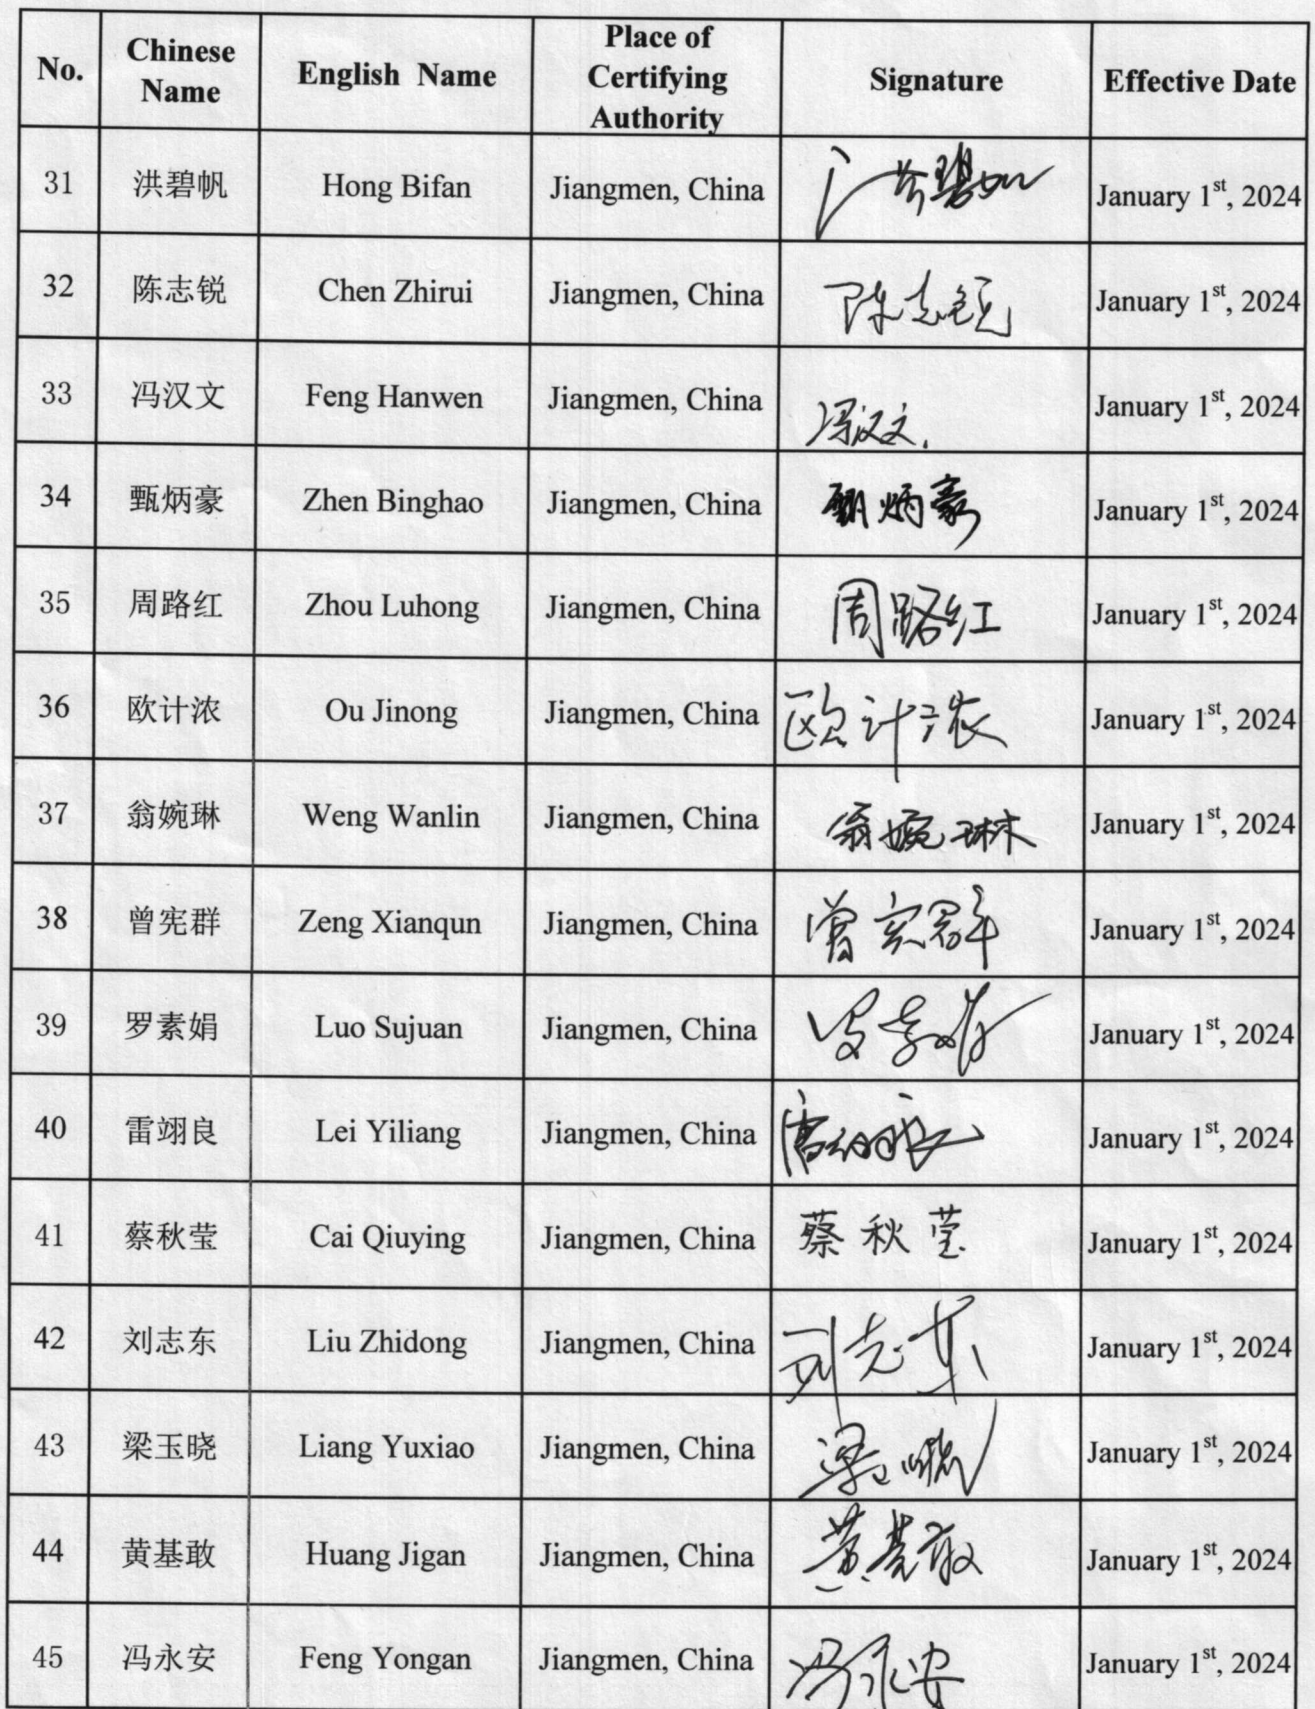 No. Chinese Name English Name Place of Certifying Authority Signature Effective Date
31 洪碧帆 Hong Bifan Jiangmen, China 洪碧帆 January 1st, 2024
32 陈志锐 Chen Zhirui Jiangmen, China 陈志锐 January 1st, 2024
33 冯汉文 Feng Hanwen Jiangmen, China 冯汉文. January 1st, 2024
34 甄炳豪 Zhen Binghao Jiangmen, China 甄炳豪 January 1st, 2024
35 周路红 Zhou Luhong Jiangmen, China 周路红 January 1st, 2024
36 欧计浓 Ou Jinong Jiangmen, China 欧计浓 January 1st, 2024
37 翁婉琳 Weng Wanlin Jiangmen, China 翁婉琳 January 1st, 2024
38 曾宪群 Zeng Xianqun Jiangmen, China 曾宪群 January 1st, 2024
39 罗素娟 Luo Sujuan Jiangmen, China 罗素娟 January 1st, 2024
40 雷翊良 Lei Yiliang Jiangmen, China 雷翊良 January 1st, 2024
41 蔡秋莹 Cai Qiuying Jiangmen, China 蔡秋莹 January 1st, 2024
42 刘志东 Liu Zhidong Jiangmen, China 刘志东 January 1st, 2024
43 梁玉晓 Liang Yuxiao Jiangmen, China 梁玉晓 January 1st, 2024
44 黄基敢 Huang Jigan Jiangmen, China 黄基敢 January 1st, 2024
45 冯永安 Feng Yongan Jiangmen, China 冯永安 January 1st, 2024